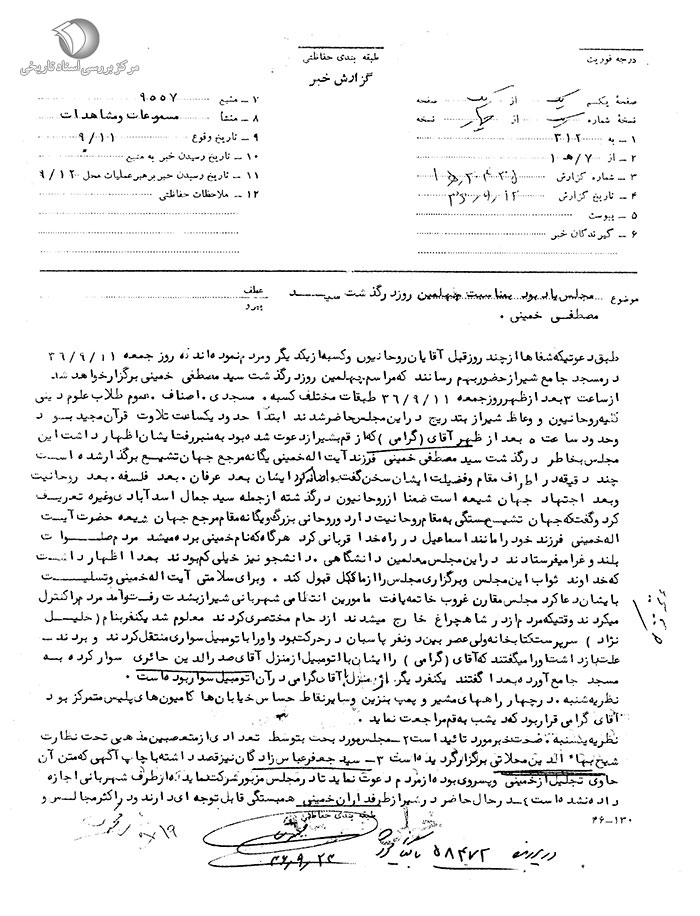 مرکز بررسی اسناد تاریخی
درجه فوریت
طبقه بندی حفاظتی
گزارش خبر
صفحهٔ یکم یک از یک صفحه
نسخهٔ شماره یک از چهار نسخه
۱ ــ به ۳۱۲
۲ ــ از ۷/هـ ۱
۳ ــ شماره گزارش
۴ ــ تاریخ گزارش ۳۶٫۹٫۱۲
۵ ــ پیوست
۶ ــ گیرندگان خبر
۷ ــ منبع ۹۵۵۷
۸ ــ منشأ مسموعات ومشاهدات
۹ ــ تاریخ وقوع ۹/۱۱
۱۰ ــ تاریخ رسیدن خبر به منبع
۱۱ ــ تاریخ رسیدن خبر برهبرعملیات محل ۹/۱۲
۱۲ ــ ملاحظات حفاظتی
موضوع مجلس یاد بود بمناسبت چهلمین روزد رگذشت سیـــد
مصطفـی خمینی ۰
عطف
پیرو
طبق دعوتیکه شفاها ازچند روزقبل آقایان روحانیون وکسبه ازیکدیگر ومردم نموده اند که روز جمعه ۳۶/۹/۱۱
درمسجد جامع شیرازحضوربهم رسانند که مراسم چهلمین روزد رگذشت سید مصطفی خمینی برگزارخواهد شد
ازساعت ۳ بعد ازظهرروزجمعه ۳۶/۹/۱۱ طبقات مختلف کسبه ۰ مسجدی ۰ اصناف ۰ عموم طلاب علوم دینی
کلیه روحانیون و وعاظ شیراز بتد ریج د راین مجلس حاضرشد ند ابتدا حدود یکساعت تلاوت قرآن مجید بــود
وحدود ساعت ۵ بعد از ظهر آقای (گرامی) که از قم بشیرازدعوت شده بود به منبررفتا یشان اظهارد اشت این
مجلس بخاطر د رگذشت سید مصطفی خمینی فرزند آیت اله خمینی یگانه مرجع جهان تشییع برگذارشده است
چند دقیقه در اطراف مقام وفضیلت ایشان سخن گفت واضافه کرد ایشان بعد عرفان ۰ بعد فلسفه ۰ بعد روحانیت
وبعد اجتهاد جهان شیعه است ضمنا ازروحانیون د رگذشته ازجمله سید جمال اسدآباد ی وغیره تعریف
کرد وگفت که جهان تشییع بستگی به مقام روحانیت دارد وروحانی بزرگ ویگانه مقام مرجع جهان شیعه حضرت آیت
اله خمینی فرزند خود را مانند اسماعیل د ر راه خد ا قربانی کرد هرگاه که نام خمینی برده میشد مردم صلــوات
بلند و غرا میفرستاد ند د راین مجلس معلمین دانشگاهی ۰ دانشجو نیز خیلی کم بود ند بعدا اظهار داشت
که خد اوند ثواب این مجلس وبرگزاری مجلس را ازما قبول کند ۰ وبرای سلامتی آیت اله خمینی وتسلیــت
با یشان دعا کرد مجلس مقارن غروب خاتمه یافت مامورین انتظامی شهربانی شیراز بشدت رفت و آمد مردم را کنترل
میکرد ند وقتیکه مردم ازدر شاهچراغ خارج میشدند ازد حام مختصری کرد ند معلوم شد یکنفربنام (خلیــل
نژاد) سرپرست کتابخانه ولی عصر بین دونفر پاسبان درحرکت بود واورا با تومبیل سواری منتقل کرد ند و برد ند ــ
علت بازداشت اورا میگفتند که آقای (گرامی) را ایشان با اتومبیل ازمنزل آقای صد رالد ین حائری سوار کرده بــه
مسجد جامع آورده بعدا گفتند یکنفرد یگر از منزل آقای گرامی در آن اتومبیل سوار بوده است ۰
نظریه شنبه ۰ درچهار راههای مشیر و پمپ بنزین وسایر نقاط حساس خیابان ها کامیون های پلیس متمرکز بود
آقای گرامی قراربود که یشب به قم مراجعت نماید ۰
نظریه یکشنبه ۰ صحت خبر مورد تائید است ۲ ــ مجلس مورد بحث بتوسط تعداد ی ازمتعصبین مذهبی تحت نظارت
شیخ بهاء الد ین محلاتی برگزارگرد یده است ۳ ــ سید جعفرعباس زادگان نیزقصد داشته با چاپ آگهی که متن آن
حاوی تجلیل ازخمینی وپسروی بوده ازمردم دعوت نماید تا درمجلس مزبورشرکت نمایند که ازطرف شهربانی اجازه
داده نشده است ۴ ــ د رحال حاضر د رشیراز طرفداران خمینی همبستگی قابل توجه ای دارند ود راکثرمجالس و
۴۶-۱۳۰
طبقه بندی حفاظتی
در پرونده ۵۸۴۷۲
۳۶٫۹٫۲۳
۹/۱۹